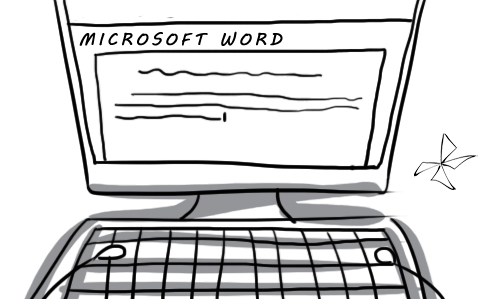 MICROSOFT WORD